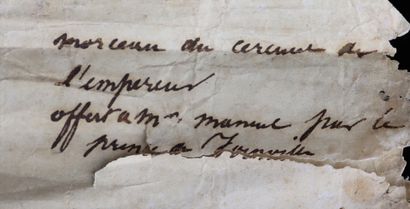 morceau du cercueil de
l'empereur
offert a Mr manuel par le
prince de Joinville